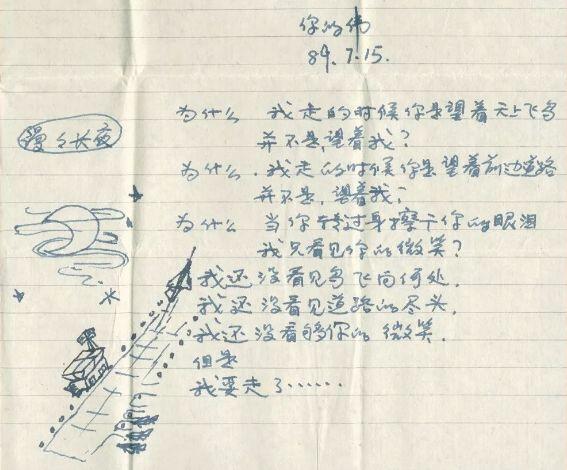 你的伟
89.7.15.
漫々长夜
为什么 我走的时候你是望着天上飞鸟
并不是望着我?
为什么.我走的时候你是望着前边道路
并不是,望着我?
为什么 当你转过身擦干你的眼泪
我只看见你的微笑?
我还没看见鸟飞向何处.
我还没看见道路的尽头.
我还没看够你的微笑.
但是
我要走了……